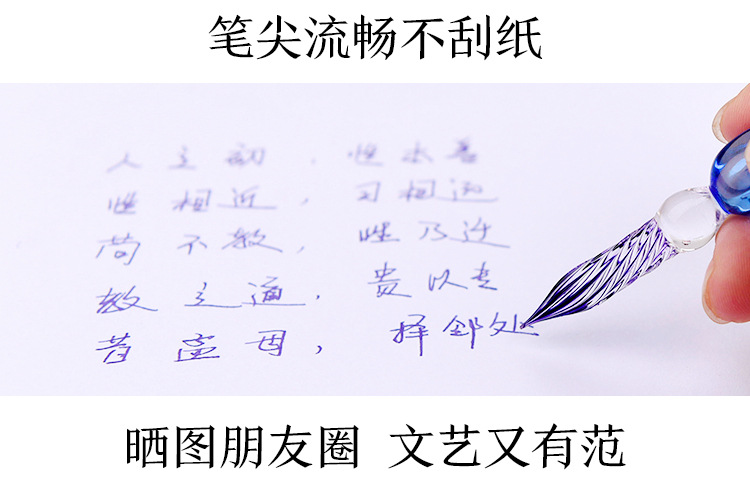 笔尖流畅不刮纸
人之初，性本善
性相近，习相远
苟不教，性乃迁
教之道，贵以专
昔孟母，择邻处
晒图朋友圈 文艺又有范